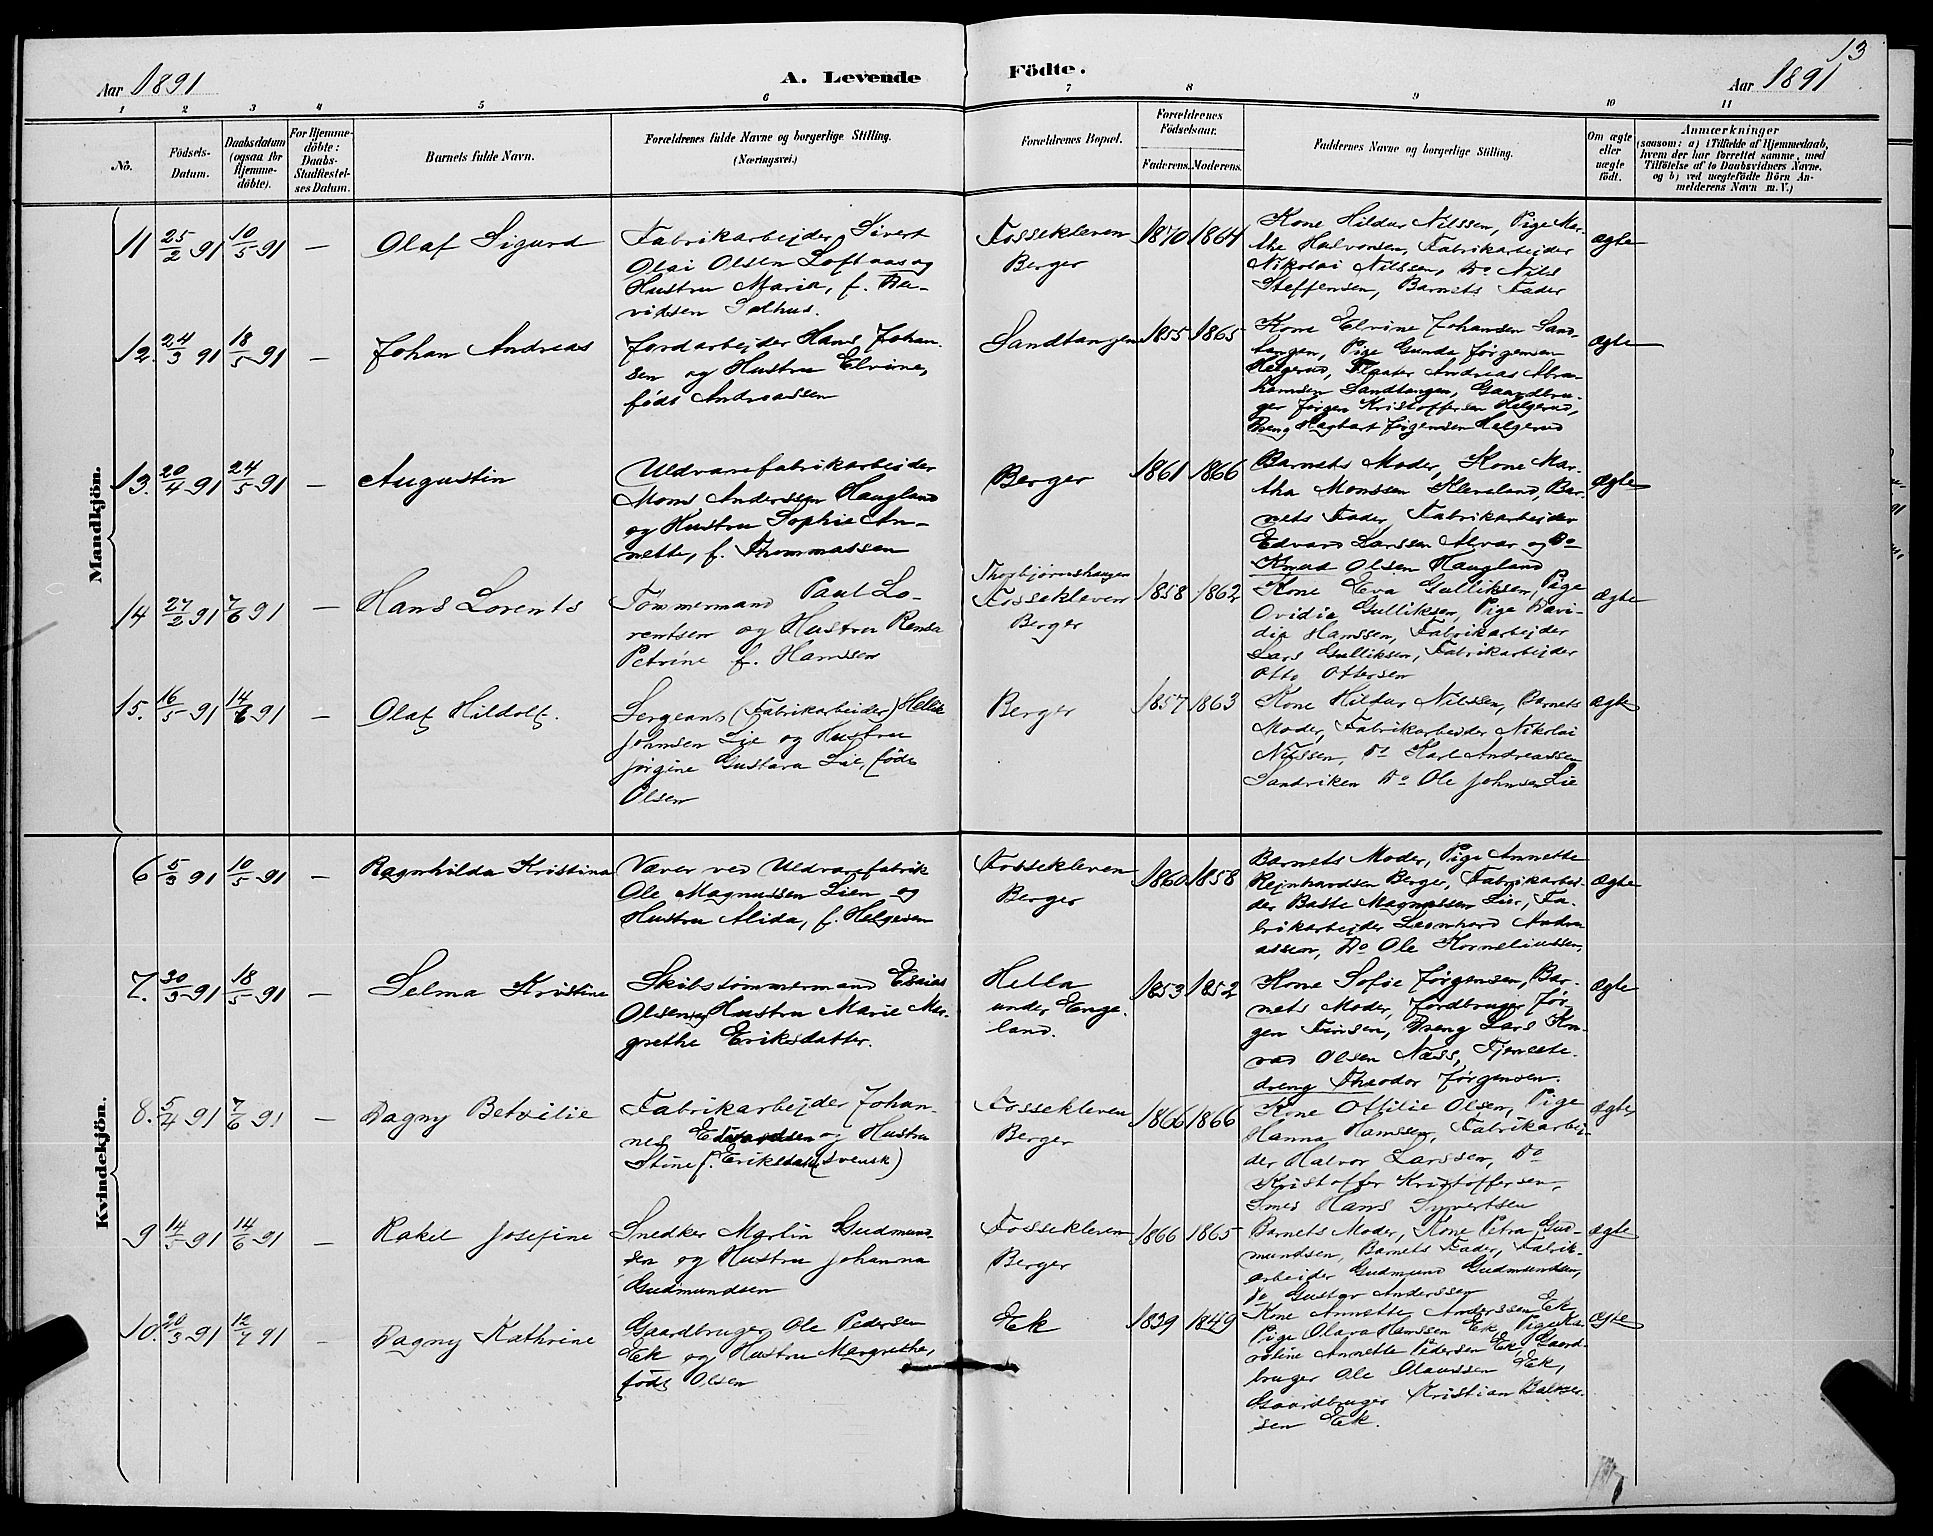 13
Aar 1891
A. Levende Födte.
Aar 1891
1 2 3 4 5 6 7 8 9 10 11
Nō.
Födsels-
Datum.
Daabsdatum
(ogsaa for
Hjemme-
döbte).
For Hjemme-
döbte:
Daabs-
Stadfæstel-
ses Datum.
Barnets fulde Navn.
Forældrenes fulde Navne og borgerlige Stilling.
(Næringsvei.)
Forældrenes Bopæl.
Forældrenes
Födselsaar.
Faderens. Moderens.
Faddernes Navne og borgerlige Stilling.
Om ægte
eller
uægte
födt.
Anmærkninger
(saasom: a) i Tilfælde af Hjemmedaab,
hvem der har forrettet samme, med
Tilföielse af to Daabsvidners Navne,
og b) ved uægtefödte Börn An-
melderens Navn m. V.)
Mandkjön.
11 25/2 91 10/5 91 — Olaf Sigurd
Fabrikarbejder Sivert
Olai Olsen Loftaas og
Hustru Maria, f. Da-
vidsen Solhus.
Fossekleven
Berger
1870 1864
Kone Hildur Nilssen, Pige Mar-
the Halvorsen, Fabrikarbejder
Nikolai Nilssen, Do Nils
Steffensen, Barnets Fader
ægte
12. 24/3 91 18/5 91 — Johan Andreas
Jordarbejder Hans Johan-
sen og Hustru Elvine,
født Andreassen
Sandtangen
1855 1865
Kone Elvine Johansen Sand-
tangen, Pige Gunda Jørgensen
Helgerud, Fløater Andreas Abra-
hamsen Sandtangen, Gaardbru-
ger Jørgen Kristoffersen Helgerud,
Dreng Hagbart Jørgensen Helgerud
ægte
13. 20/4 91 24/5 91 — Augustin
Uldvarefabrikarbejder
Mons Anderssen Haugland
og Hustru Sophie An-
nette, f. Thommassen
Berger
1861 1866
Barnets Moder, Kone Mar-
tha Monssen Kleveland, Bar-
nets Fader, Fabrikarbejder
Edvard Larssen Alvar og Do
Knud Olsen Haugland
ægte
14 27/2 91 7/6 91 — Hans Lorents
Tømmermand Paul Lo-
rentsen og Hustru Rensa
Petrine f. Hanssen
Thorbjørnshaugen
Fossekleven
Berger
1858 1862
Kone Eva Gulliksen, Pige
Ovidia Gulliksen, Pige Davi-
dia Hanssen, Fabrikarbejder
Lars Gulliksen, Fabrikarbejder
Otto Ottersen
ægte
15. 16/5 91 14/6 91 — Olaf Hildolf.
Sergeant (Fabrikarbeider) Hellik
Johnsen Lie og Hustru
Jørgine Gustava Lie, født
Olsen
Berger
1857 1863
Kone Hildur Nilssen, Barnets
Moder, Fabrikarbejder Nikolai
Nilssen, Do Karl Andreassen
Sandviken Do Ole Johnsen Lie
ægte
Kvindekjön.
6 5/3 91 10/5 91 — Ragnhilda Kristina
Væver ved Uldvarefabrik
Ole Magnussen Lien og
Hustru Alida, f. Helgesen
Fossekleven
Berger
1860 1858
Barnets Moder, Pige Annette
Rejnhardsen Berger, Fabrikarbei-
der Baste Magnussen Lier, Fa-
brikarbejder Leonhard Andre-
assen, Do Ole Korneliussen,
ægte
7. 30/3 91 18/5 91 — Selma Kristine
Skibstømmermand Esaias
Olsen og Hustru Marie Mar-
grethe Eriksdatter.
Hella
under Enge-
land.
1853 1852
Kone Sofie Jørgensen, Bar-
nets Moder, Jordbruger Jør-
gen Finsen, Dreng Lars Kon-
rad Olsen Næss, Tjeneste-
dreng Theodor Jørgensen.
ægte
8. 5/4 91 7/6 91 — Dagny Betzilie
Fabrikarbejder Johan-
nes Edvardsen og Hustru
Stine f. Eriksdatt (svensk)
Fossekleven
Berger
1866 1866
Kone Ottilie Olsen, Pige
Hanna Hanssen, Fabrikarbej-
der Halvor Larssen, Do
Kristoffer Kristoffersen,
Smed Hans Syvertsen
ægte
9 14/5 91 14/6 91 — Rakel Josefine
Snedker Martin Gudmund-
sen og Hustru Johanna
Gudmundsen
Fossekleven
Berger
1866 1865
Barnets Moder, Kone Petra Gud-
mundsen, Barnets Fader, Fabrik-
arbeider Gudmund Gudmundsen,
Do Gustav Anderssen
ægte
10. 20/3 91 12/7 91 — Dagny Kathrine
Gaardbruger Ole Pedersen
Ek og Hustru Margrethe,
født Olsen
Ek
1839 1849
Kone Annette Anderssen Ek,
Pige Olava Hanssen Ek, Pige Ka-
roline Annette Pedersen Ek, Gaard-
bruger Ole Olaussen Ek,
Gaardbruger Kristian Baltser-
sen Ek.
ægte